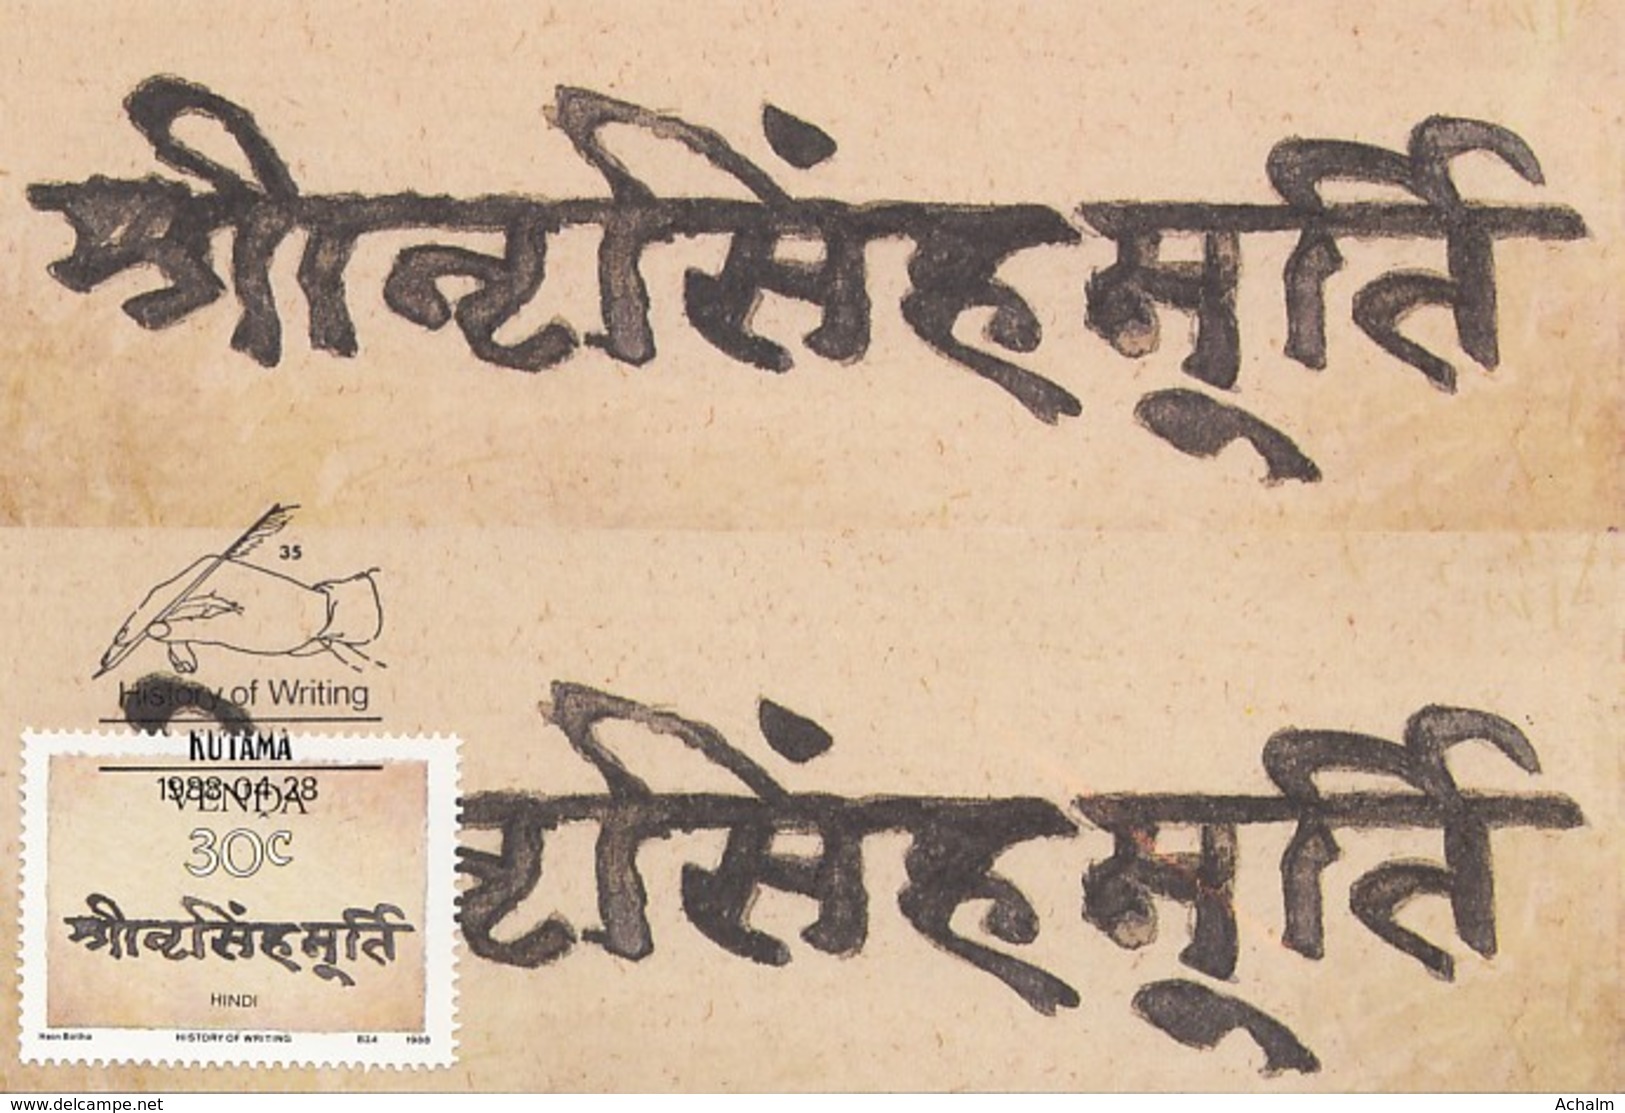 श्रीनृसिंहमूर्ति
35
History of Writing
KUTAMA
1988-04-28
VENDA
30c
श्रीनृसिंहमूर्ति
HINDI
Hein Botha HISTORY OF WRITING B24 1988
www.delcampe.net
Achalm